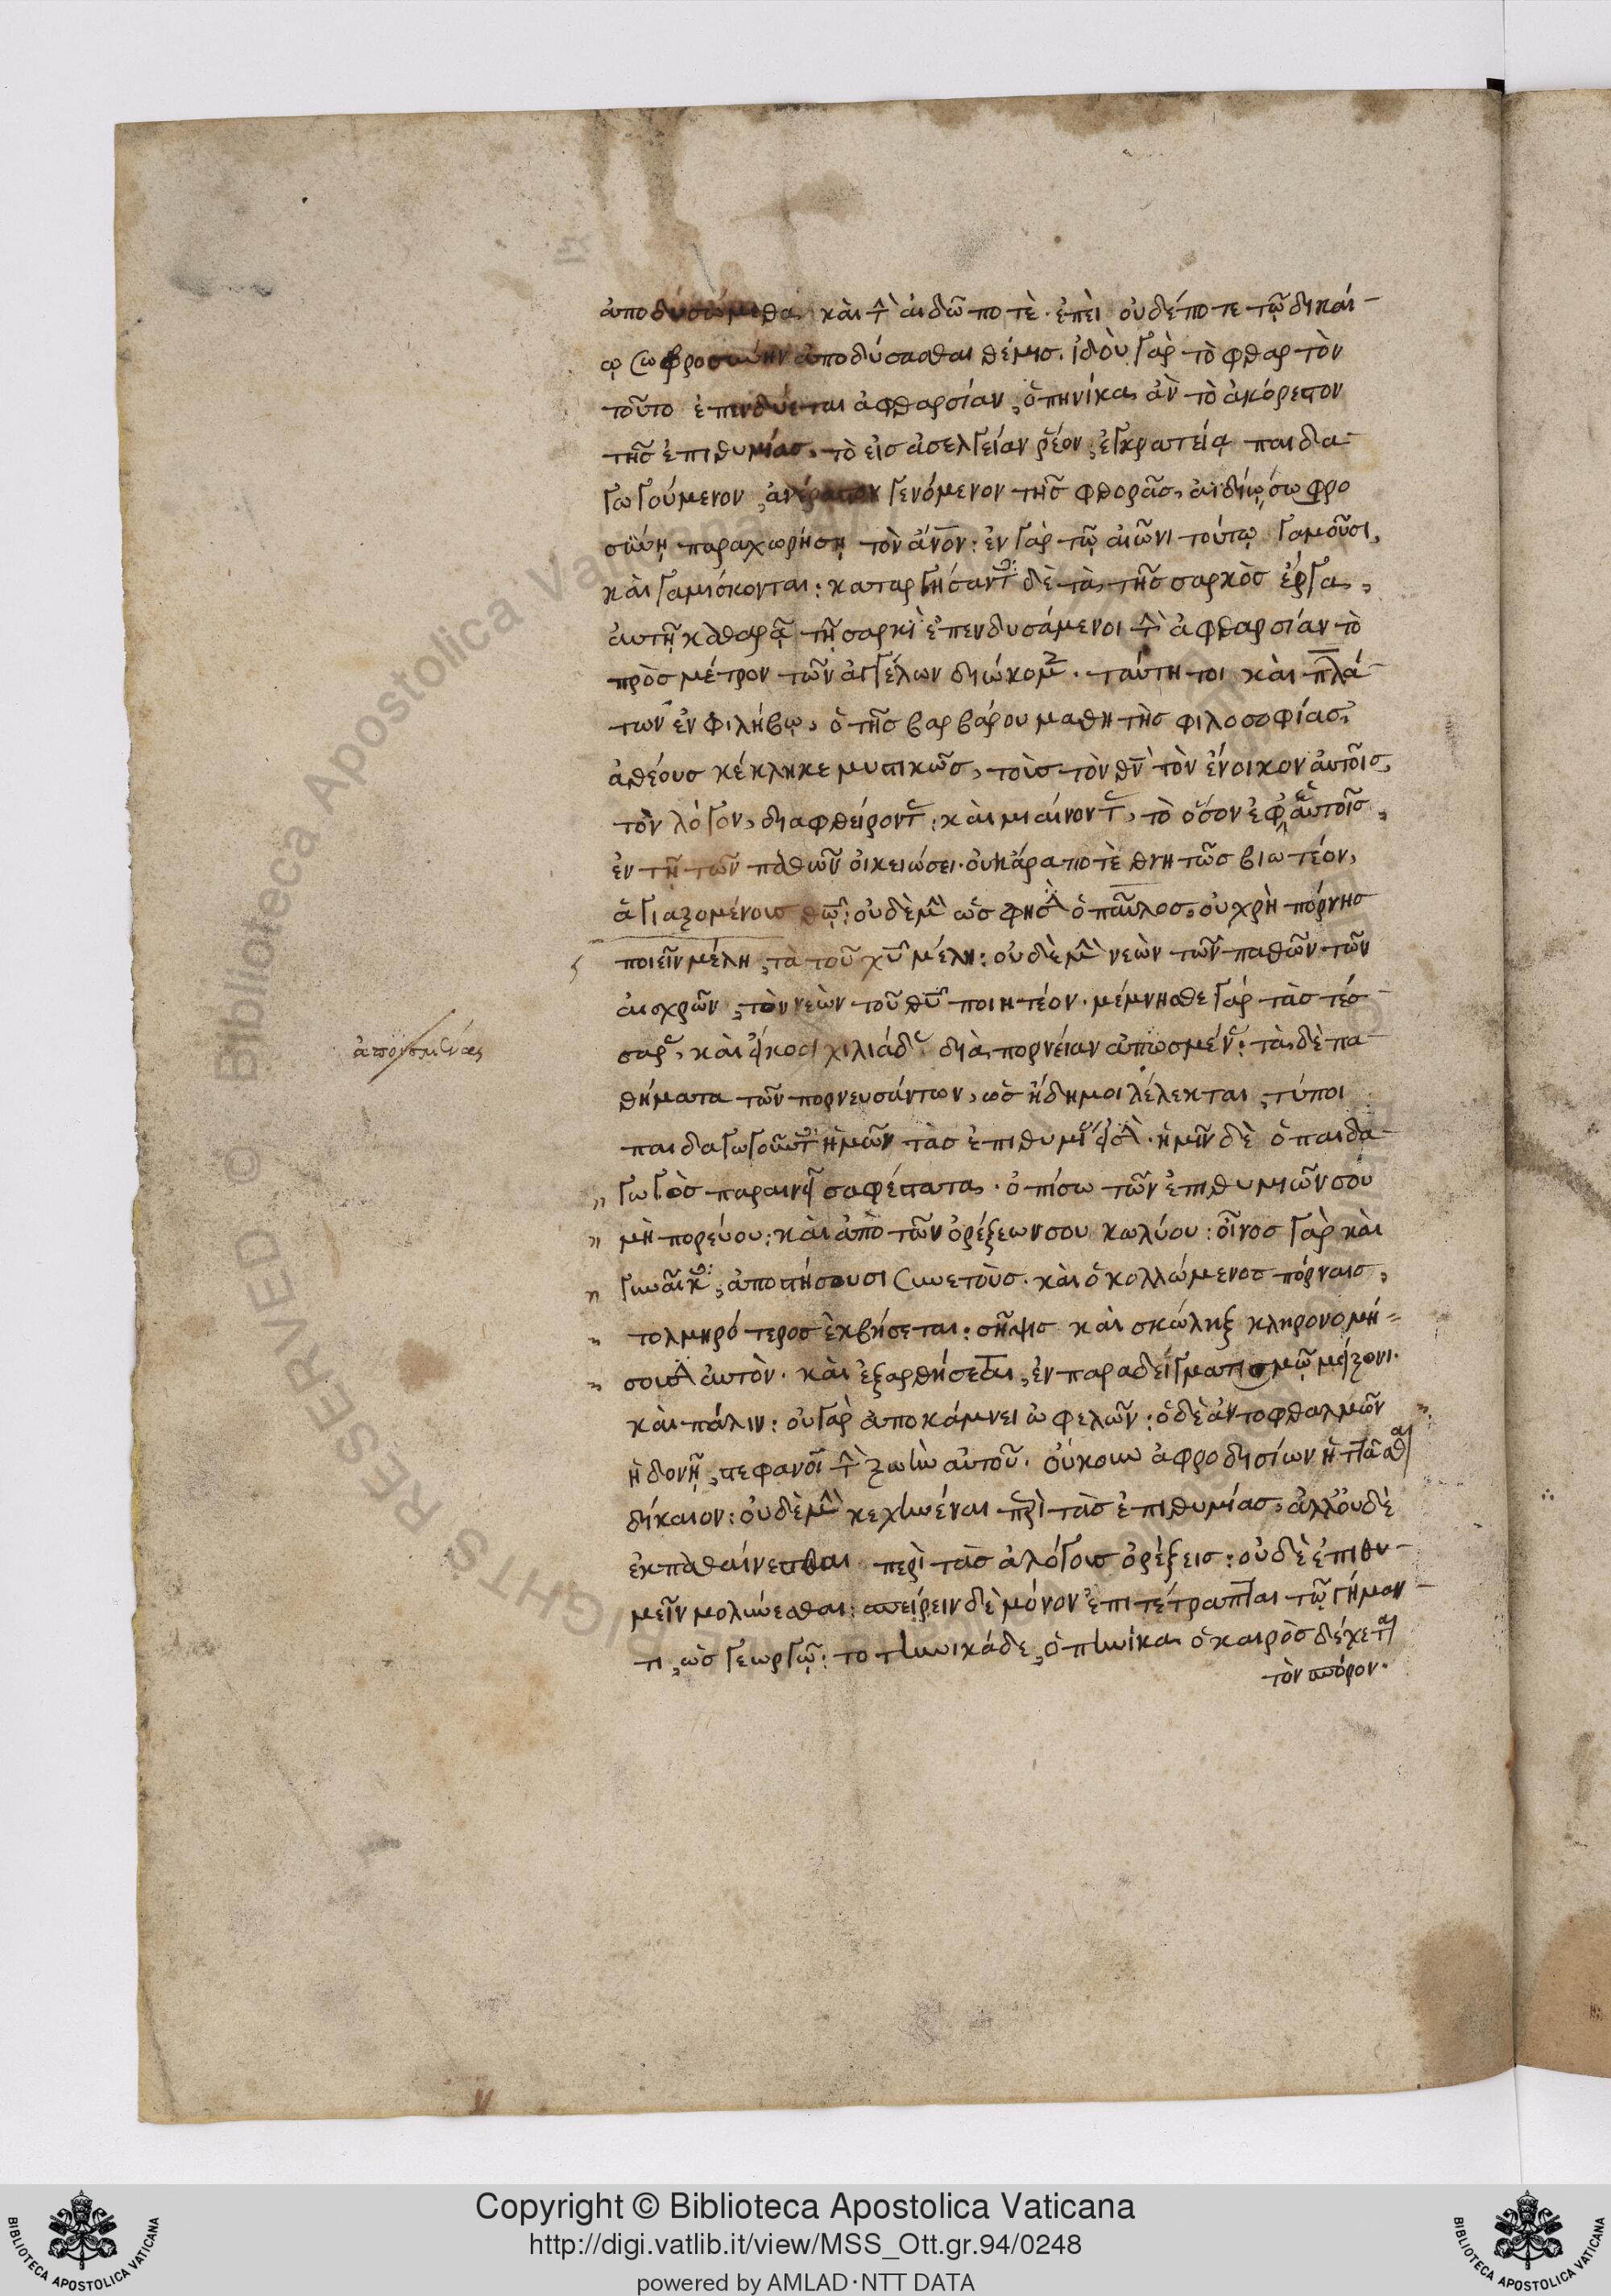 ἀποδυσώμεθα καὶ τ̀ αἰδῶ ποτὲ· ἐπεὶ οὐδέποτε τῷ δικαί-
ῳ σωφροσύνην ἀποδύσασθαι θέμισ. ἰδοὺ γὰρ τὸ φθαρτὸν
τοῦτο ἐπενδύεται ἀφθαρσίαν, ὁπηνίκα ἂν τὸ ἀκόρεστον
τῆσ ἐπιθυμίασ, τὸ εἰσ ἀσέλγειαν ῥέον, ἐγκρατείᾳ παιδα-
γωγούμενον, ἀνέραστον γενόμενον τῆσ φθορᾶσ, ἀϊδίῳ σωφρο
σύνῃ παραχωρήσῃ τὸν ἄνον: ἐν γὰρ τῷ αἰῶνι τούτῳ γαμοῦσι,
καὶ γαμίσκονται: καταργήσαντ δὲ τὰ τῆσ σαρκὸσ ἔργα,
αὐτῇ καθαρᾷ τῇ σαρκὶ ἐπενδυσάμενοι τ̀ ἀφθαρσίαν τὸ
πρὸσ μέτρον τῶν ἀγγέλων διώκομ. ταύτη τοι καὶ πλά-
των ἐν φιλήβῳ, ὁ τῆσ βαρβάρου μαθητὴσ φιλοσοφίασ,
ἀθέουσ κέκληκε μυστικῶσ, τοὺσ τὸν θν τὸν ἔνοικον αὐτοῖσ,
τὸν λόγον, διαφθείροντ, καὶ μιαίνοντ, τὸ ὅσον ἐφ ἑαυτοῖσ,
ἐν τῇ τῶν παθῶν οἰκειώσει· οὐκ ἄρα ποτὲ θνητῶσ βιωτέον,
ἁγιαζομένουσ θῷ: οὐδὲ μ ὥσ φησ ὁ παῦλοσ, οὐ χρὴ πόρνησ
ποιεῖν μέλη, τὰ τοῦ χυ μέλη: οὐδὲ μ νεὼν τῶν παθῶν τῶν
αἰσχρῶν, τὸν νεὼν τοῦ θυ ποιητέον· μέμνησθε γὰρ τὰσ τέσ-
σαρ, καὶ εἴκοσι χιλιάδ διὰ πορνείαν ἀπωσμέν: τὰ δὲ πα-
ἀπωσμένας
θήματα τῶν πορνευσάντων, ὡσ ἤδη μοι λέλεκται, τύποι
παιδαγωγοῦντ ἡμῶν τὰσ ἐπιθυμί εἰσ. ἡμῖν δὲ ὁ παιδα-
γωγὸσ παραινεῖ σαφέστατα· ὀπίσω τῶν ἐπιθυμιῶν σου
μὴ πορεύου: καὶ ἀπὸ τῶν ὀρέξεων σου κωλύου: οἶνοσ γὰρ καὶ
γυναῖκ, ἀποστήσουσι συνετοὺσ· καὶ ὁ κολλώμενοσ πόρναισ,
τολμηρότεροσ ἐκβήσεται: σῆψισ καὶ σκώληξ κληρονομή-
σουσ αὐτὸν· καὶ ἐξαρθήσεται, ἐν παραδειγματισμῷ μείζονι.
καὶ πάλιν: οὐ γὰρ ἀποκάμνει ὠφελῶν: ὁ δὲ ἀντοφθαλμῶν
ἡδονῇ, στεφανοῖ τ̀ ζωὴν αὐτοῦ. οὔκουν ἀφροδισίων ἡττᾶσθ
δίκαιον: οὐδὲ μ κεχηνέναι περὶ τὰσ ἐπιθυμίασ, ἀλλ' οὐδὲ
ἐκπαθαίνεσθαι περὶ τὰσ ἀλόγουσ ὀρέξεισ: οὐδὲ ἐπιθυ-
μεῖν μολύνεσθαι: σπείρειν δὲ μόνον ἐπιτέτραπται τῷ γήμαν-
τι, ὡσ γεωργῷ: τοτηνικάδε, ὁπηνίκα ὁ καιρὸσ δέχετ
τὸν σπόρον.
Copyright © Biblioteca Apostolica Vaticana
http://digi.vatlib.it/view/MSS_Ott.gr.94/0248
powered by AMLAD·NTT DATA
BIBLIOTECA APOSTOLICA VATICANA
BIBLIOTECA APOSTOLICA VATICANA